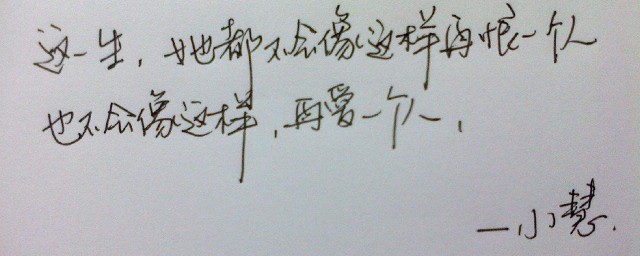 这一生，她都不会像这样再恨一个人
也不会像这样，再爱一个人，
—小慧.